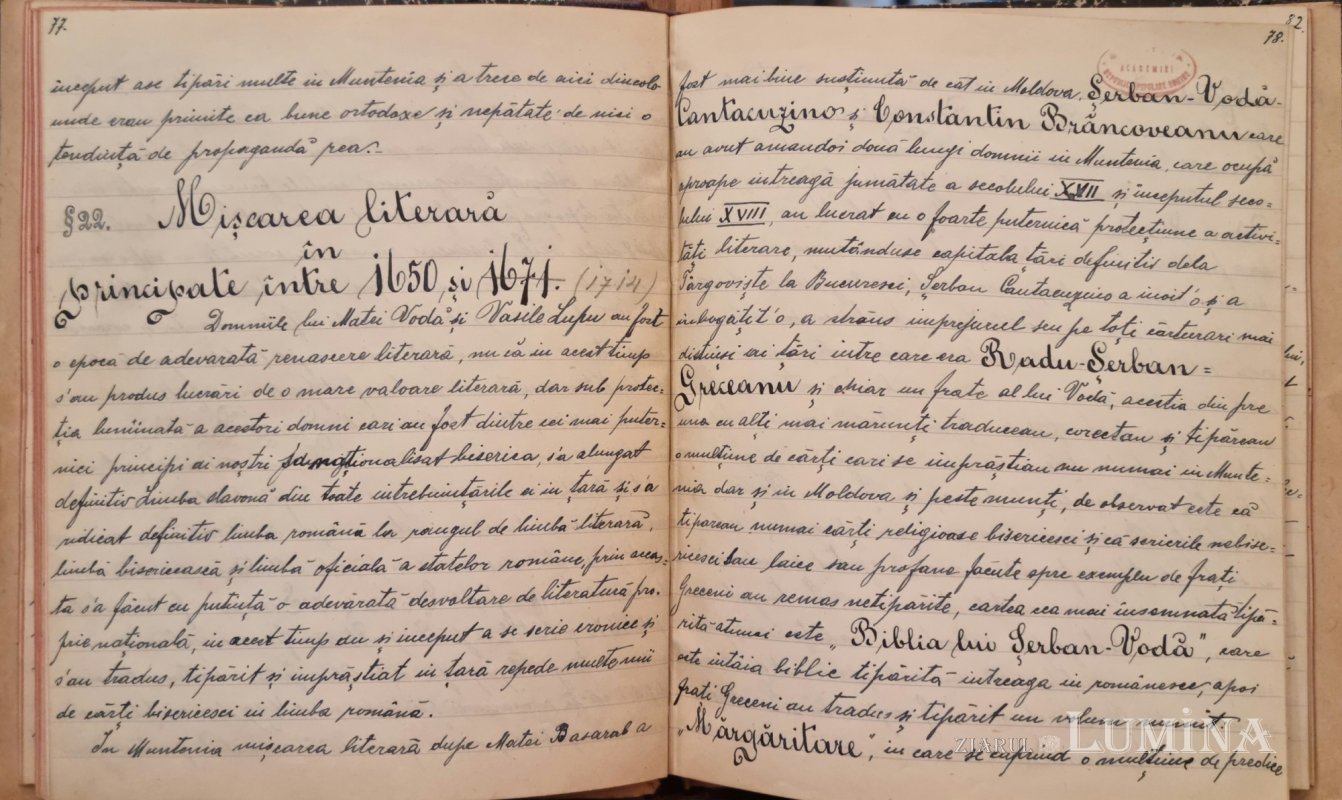 77.
început ase tipări multe in Muntenia și a trece de aici dincolo
unde erau primite ca bune ortodoxe și nepătate de nici o
tendință de propagandă rea.-
§22. Mișcarea literară
în
principate între 1650 și 1671. (1714)
Domniile lui Matei Vodă și Vasile Lupu au fost
o epocă de adevarată renascere literară, nu că in acest timp
s'au produs lucrări de o mare valoare literară, dar sub protec-
ția luminată a acestori domni cari au fost dintre cei mai puter-
nici principi ai noștri s'a naționalisat biserica, s'a alungat
definitiv Limba slavonă din toate intrebuințările ei in țară și s'a
ridicat definitiv limba română la rangul de limbă literară,
limbă bisericească și limbă oficială a statelor române, prin aceas-
ta s'a făcut cu putință o adevărată desvoltare de literatură pro-
prie națională, in acest timp au și inceput a se scrie cronice și
s'au tradus, tipărit și imprăștiat in țară repede multe mii
de cărți bisericesci in limba română.
In Muntenia mișcarea literară dupe Matei Basarab a
82.
78.
ACADEMIEI
fost mai bine susținută de cât in Moldova. Șerban-Vodă-
Cantacuzino și Constantin Brâncoveanu care
au avut amandoi două lungi domnii in Muntenia, care ocupă
aproape intreagă jumătate a secolului XVII și inceputul seco-
lului XVIII, au lucrat cu o foarte puternică protecțiune a activi-
tăți literare, mutânduse capitala țări definitiv dela
Târgoviște la Bucuresci, Șerban Cantacuzino a insit'o și a
inbogățit'o, a strâns imprejurul seu pe toți cărturari mai
distinsi ai țări intre care era Radu-Șerban=
Greceanu și chiar un frate al lui Vodă, acestia din pre
una cu alți mai mărunți traduceau, corectau și tipăreau
o mulțime de cărți cari se imprăștiau nu numai in Munte-
nia dar și in Moldova și peste munți, de observat este că
tipareau numai cărți religioase bisericesci și că scrierile nebise-
ricesci sau laice sau profane făcute spre exemplu de frați
Greceni au remas netipărite, cartea cea mai însemnată tipă-
rită atunci este „Biblia lui Șerban-Vodă", care
este intâia biblie tipărită intreaga in românesce, apoi
frați Greceni au tradus și tipărit un volum numit
„Mărgăritare", in care se cuprind o mulțime de predice
ZIARUL LUMINA